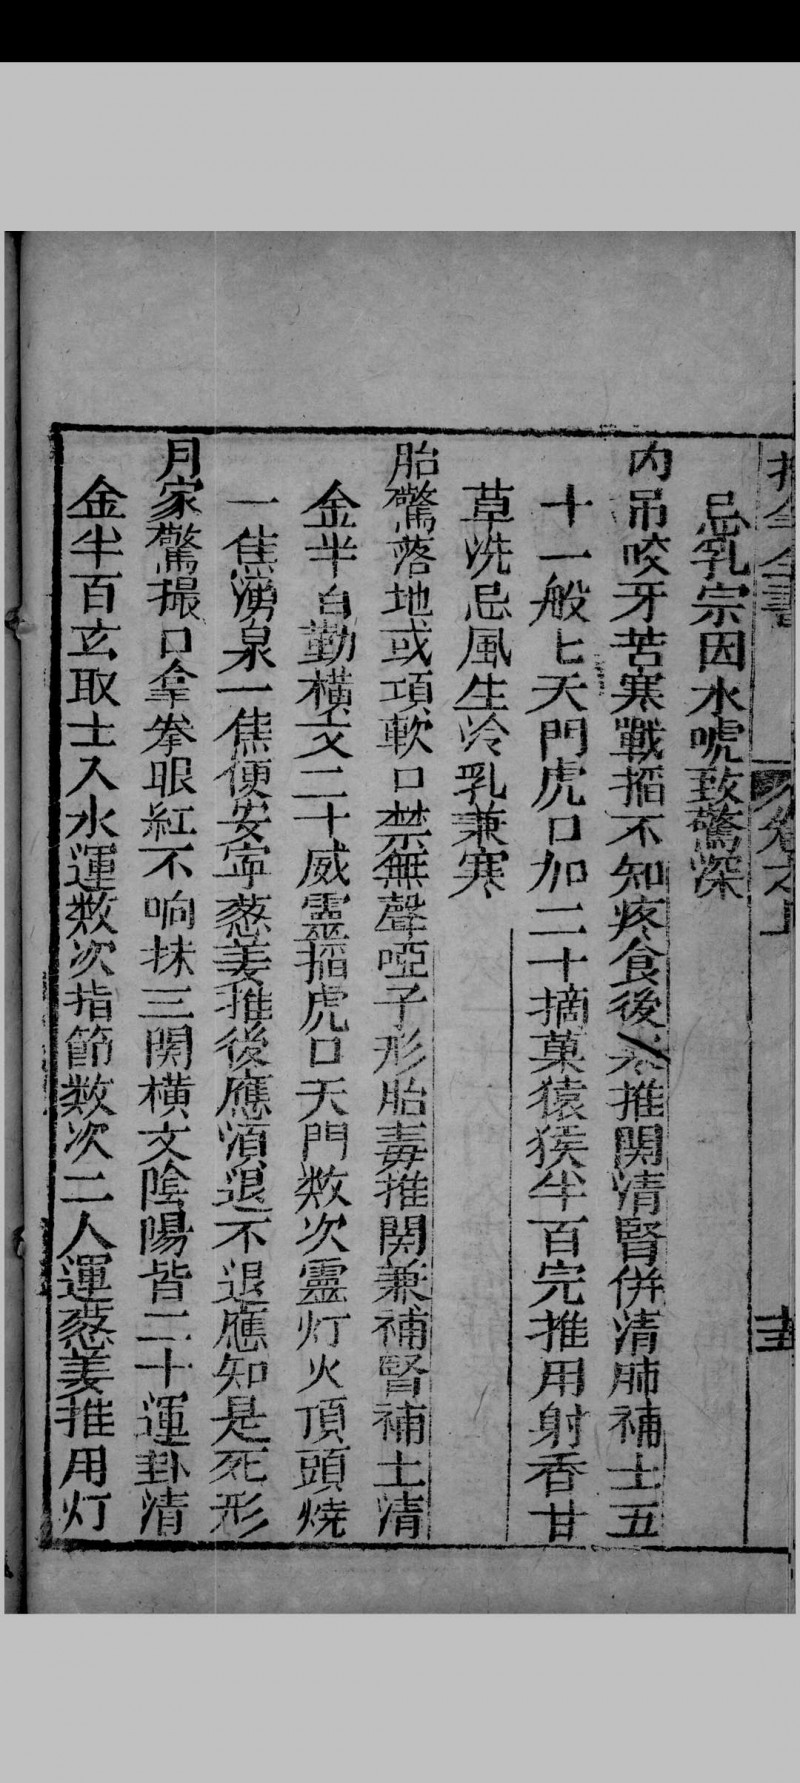 忌乳宗因水唬致驚深
内吊咬牙苦寒戰掐不知疼食後推関清腎併清肺補土五
十一般七天門虎口加二十摘菓猿猴半百完推用射香甘
草洗忌風生冷乳兼寒
胎驚落地或項軟口禁無聲啞子形胎毒推関兼補腎補土清
金半百勤横文二十威靈掐虎口天門数次靈灯火頂頭燒
一焦湧泉一焦便安寧葱姜推後應須退不退應知是死形
月家驚撮口拿拳眼紅不响抹三関横文陰陽皆二十運卦清
金半百玄取土入水運数次指節数次二人運葱姜推用灯